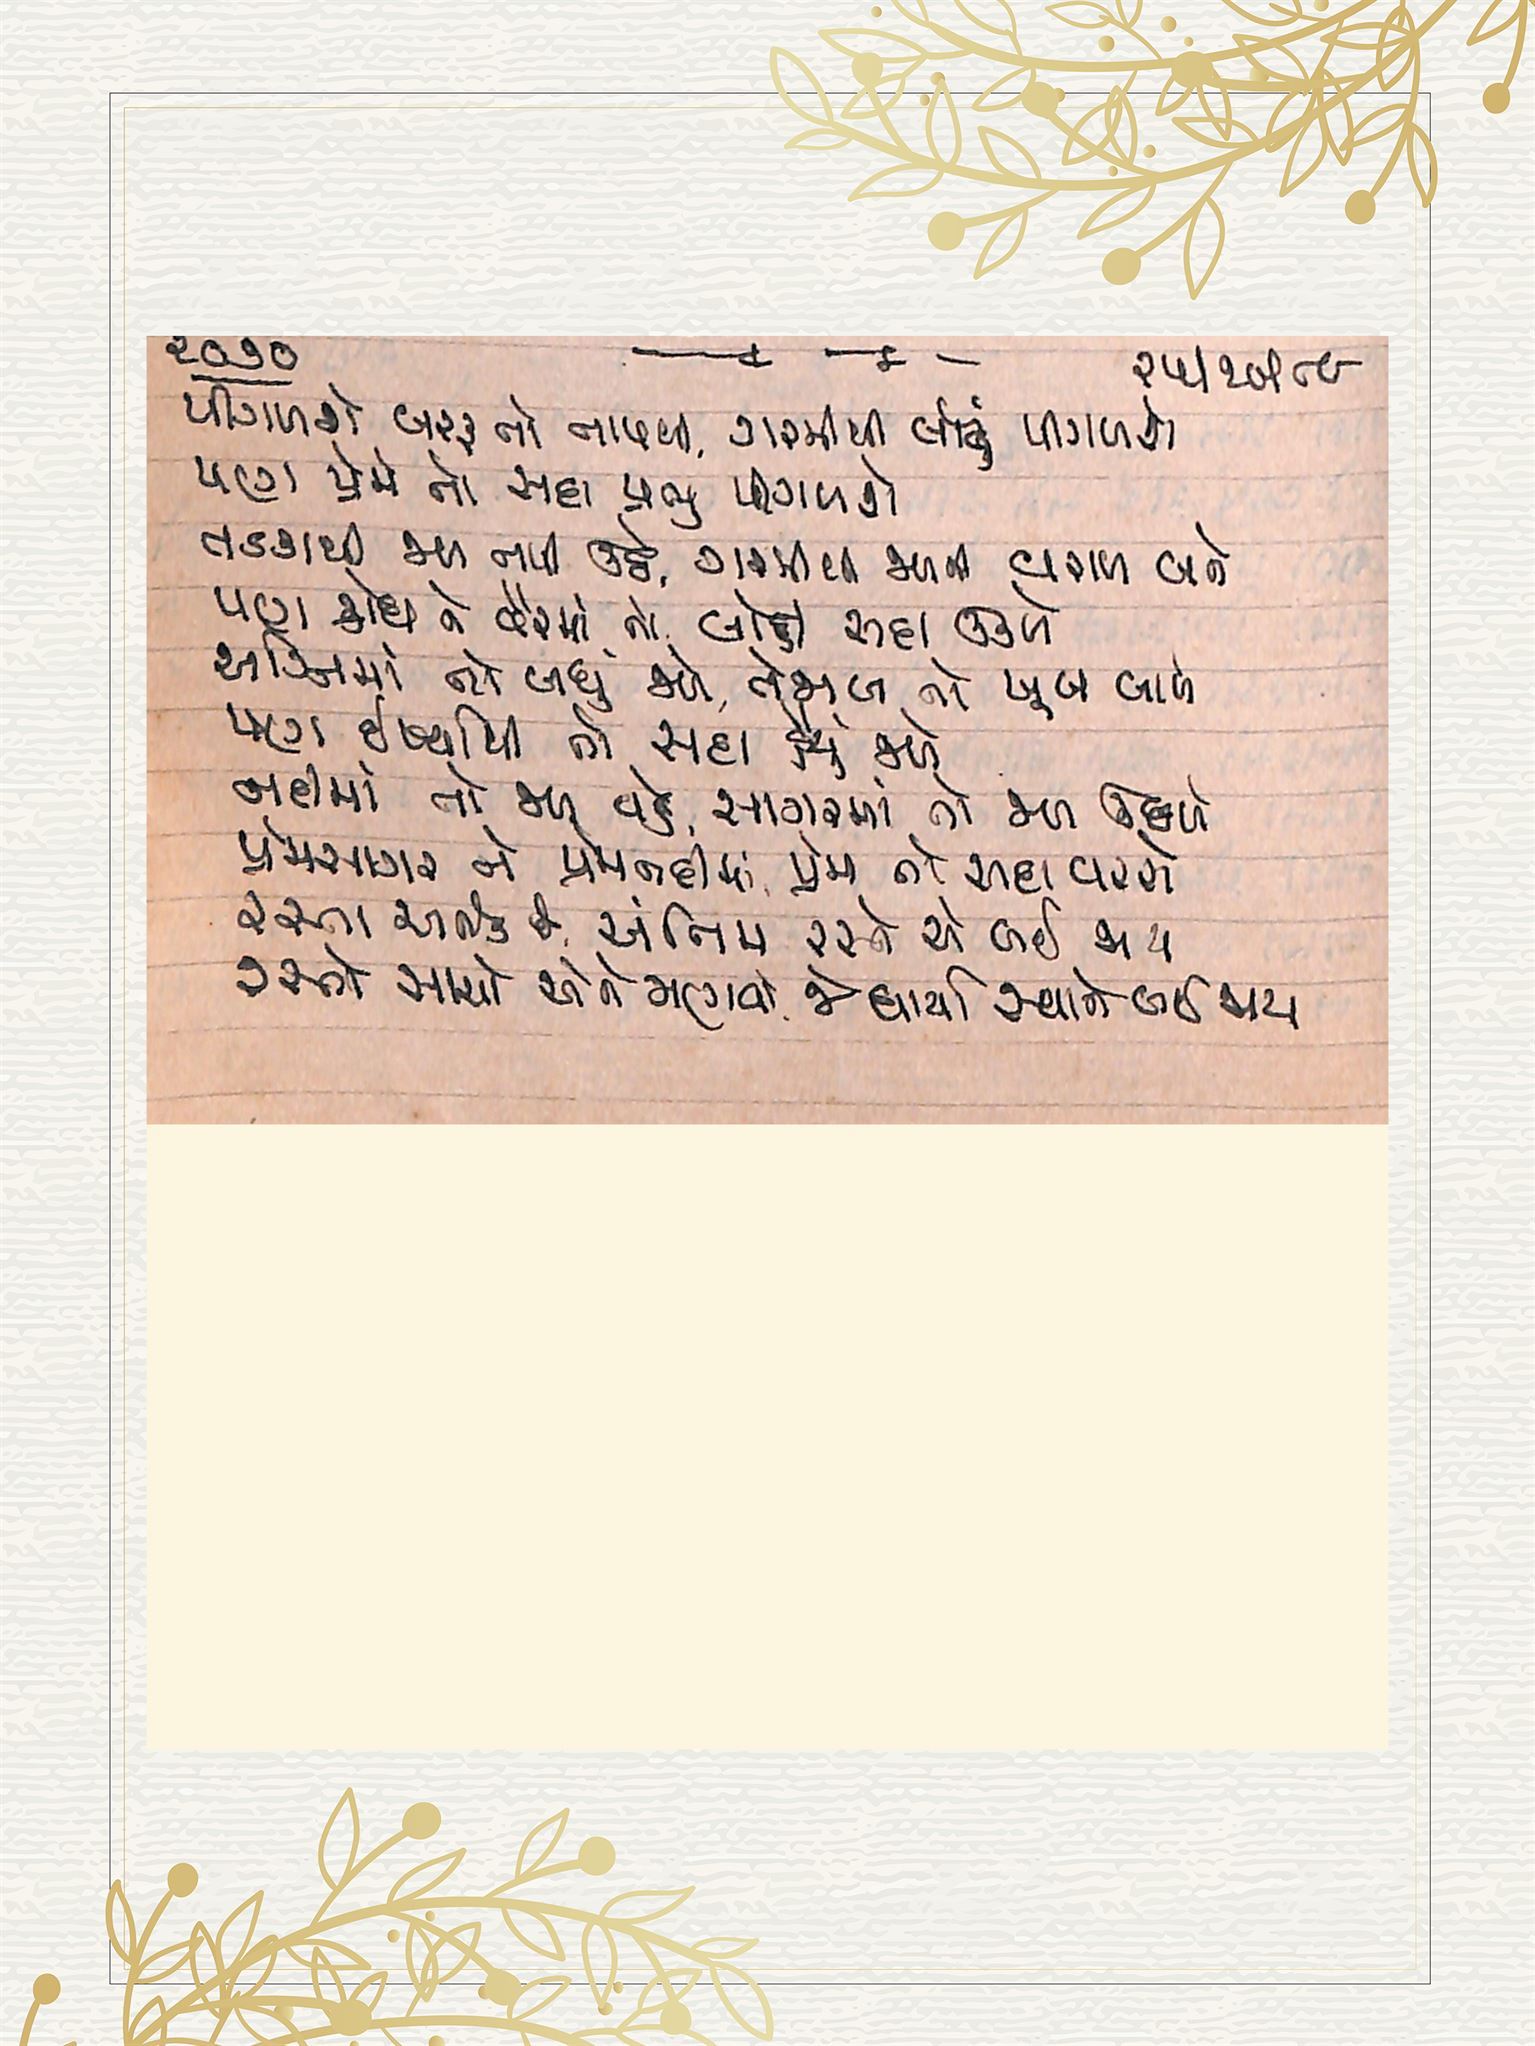 ૨૦૭૦
પીગળશે બરફ તો તાપથી, ગરમીથી લોઢું પીગળશે
પણ પ્રેમે તો સદા પ્રભુ પીગળશે
તડકાથી જળ તપી ઉઠે, ગરમીથી જળની વરાળ બને
પણ ક્રોધ ને વૈરમાં તો, લોહી સદા ઉકળે
અગ્નિમાં તો બધું જળે, તેજાબ તો ખૂબ બાળે
પણ ઈર્ષ્યાથી તો સદા હૈયું જળે
નદીમાં તો જળ વહે, સાગરમાં તો જળ ઉછળે
પ્રેમસાગર ને પ્રેમનદીમાં, પ્રેમ તો સદા વરસે
રસ્તા અનેક છે, અંતિમ રસ્તે એ લઈ જાય
રસ્તો સાચો એને ગણવો, જે ધાર્યા સ્થાને લઈ જાય